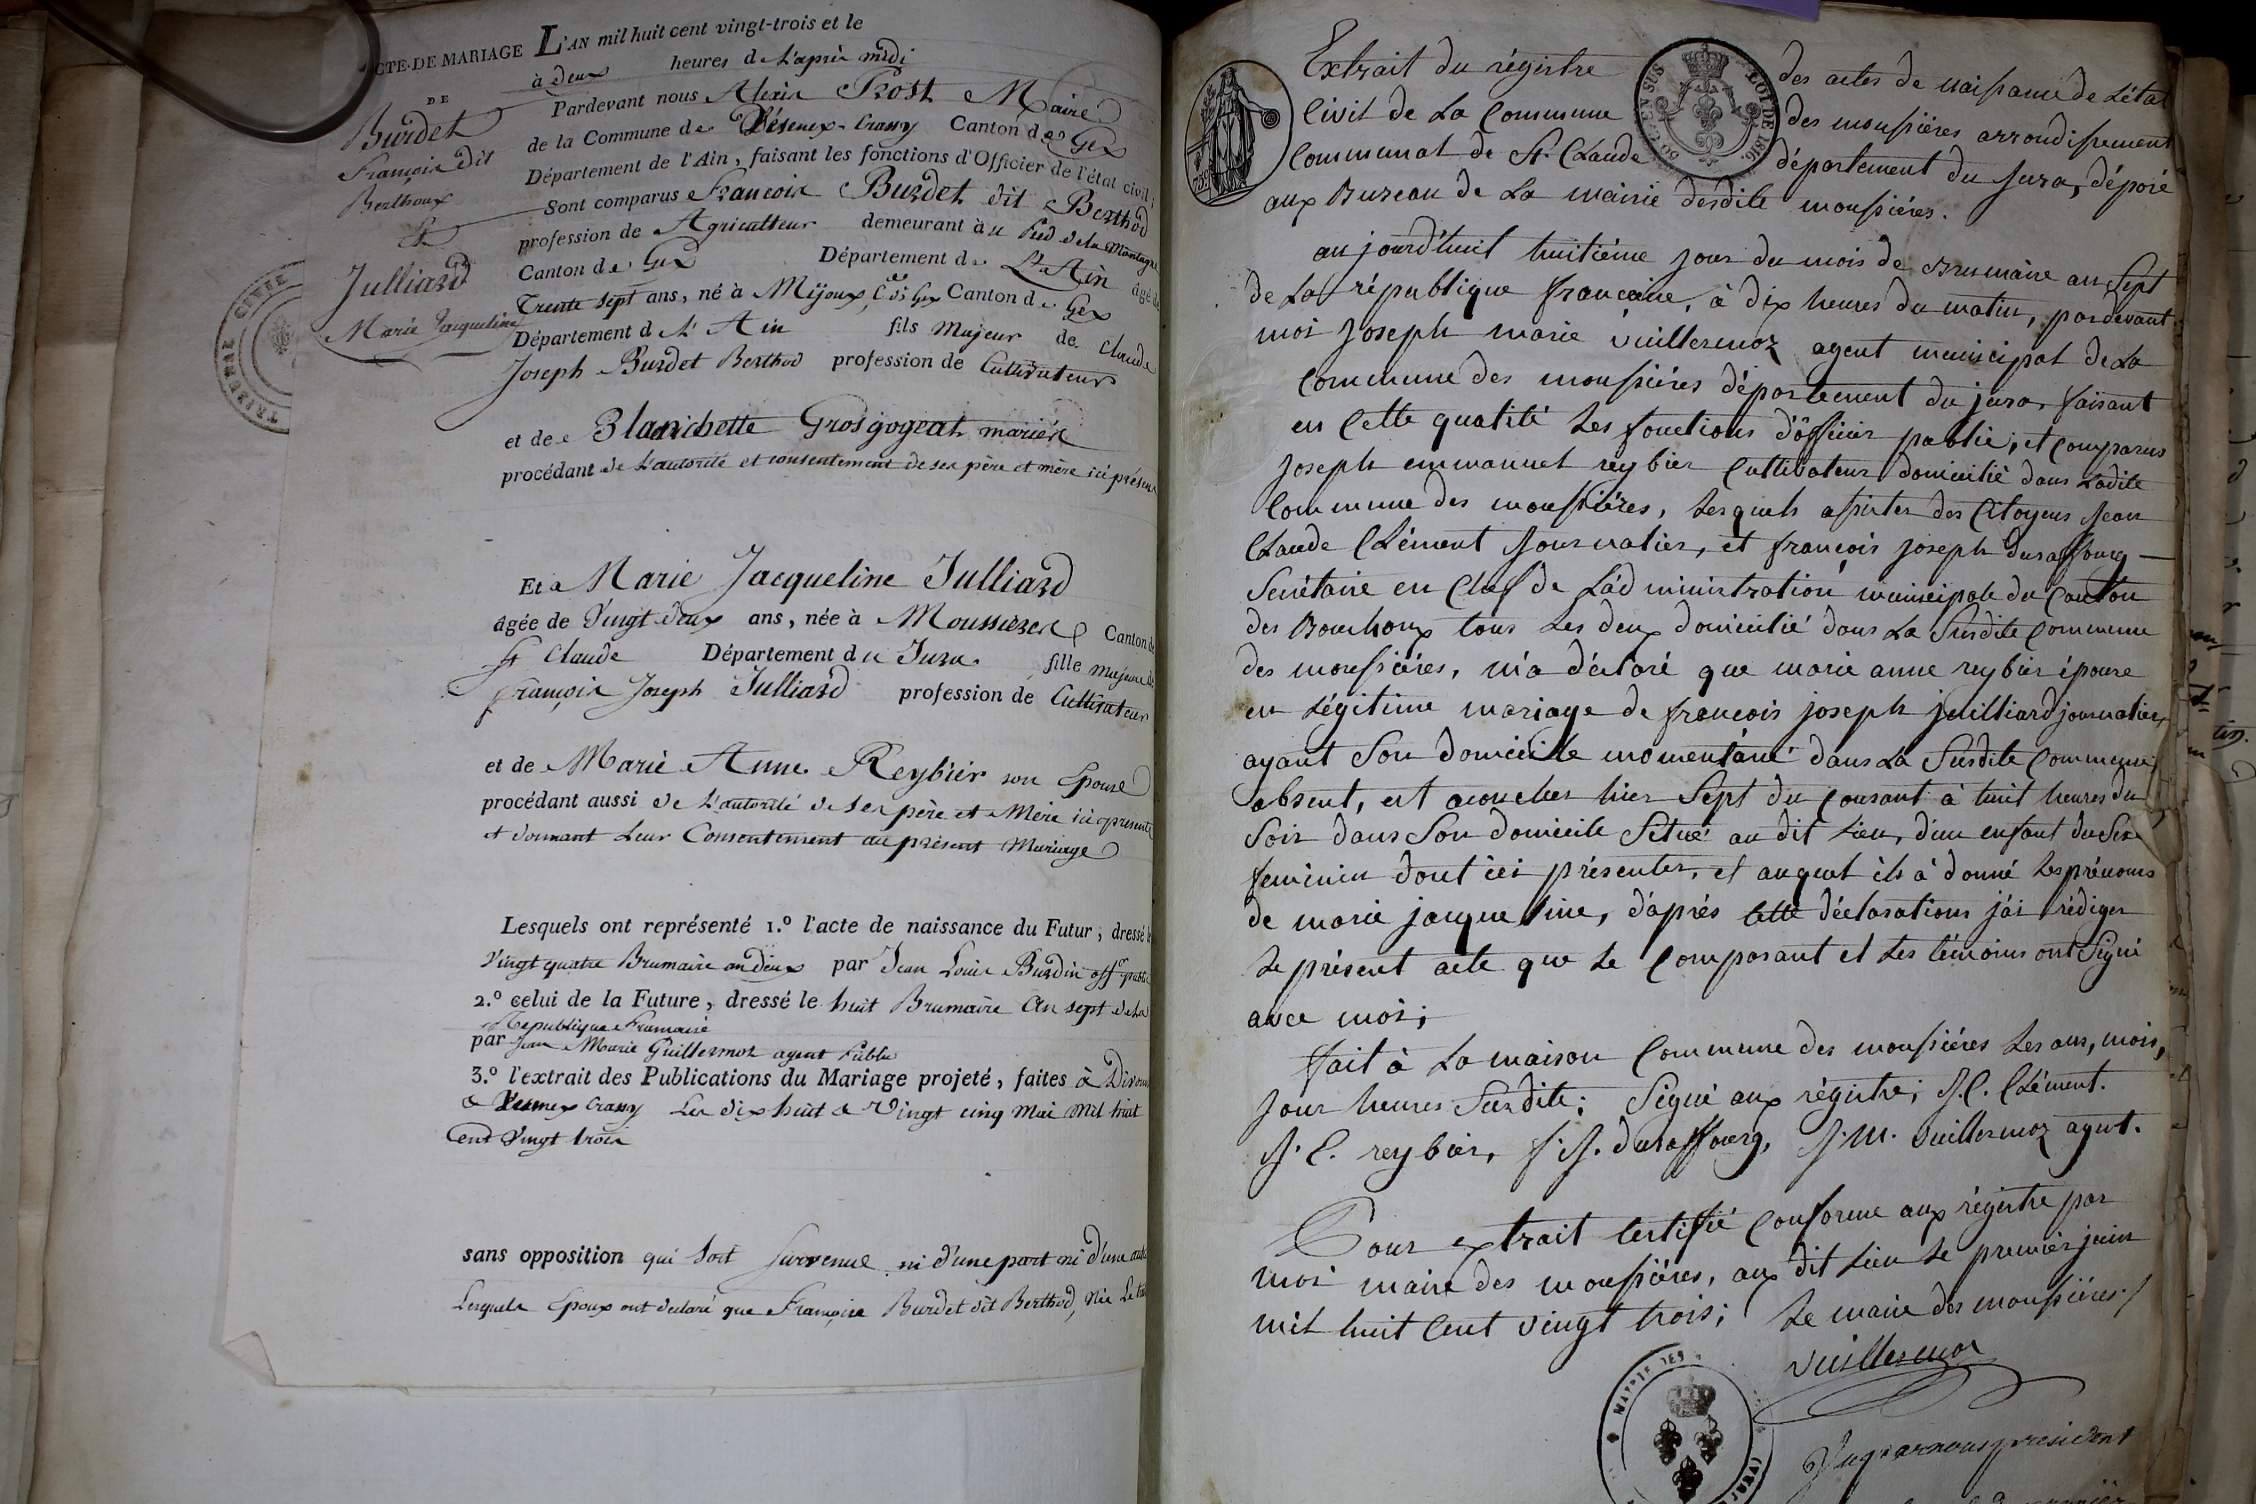 ACTE DE MARIAGE
DE
Burdet
François dit
Berthoux
&
Julliard
Marie Jacqueline
L'AN mil huit cent vingt-trois et le
à deux heures de L'après midi
Pardevant nous Alexis Prost Maire
de la Commune de Vésenex-Crassy Canton de Gex
Département de l'Ain, faisant les fonctions d'Officier de l'état civil;
Sont comparus François Burdet dit Berthod
profession de Agriculteur demeurant au Pied de la Montagne
Canton de Gex Département de L'Ain âgé de
Trente sept ans, né à Mijoux, Canton de Gex
Département d L'Ain fils Majeur de Claude
Joseph Burdet Berthod profession de Cultivateur
et de Blanchette Grosgogeat mariés
procédant de L'autorité et consentement de ses père et mère ici présens
Et a Marie Jacqueline Julliard
âgée de Vingt deux ans, née à Moussieres Canton de
St Claude Département du Jura fille majeure de
François Joseph Julliard profession de Cultivateur
et de Marie Anne Reybier son Epouse
procédant aussi de L'autorité de ses père et Mère ici presents
et donnant Leur Consentement au présent Mariage
Lesquels ont représenté 1.º l'acte de naissance du Futur, dressé le
Vingt quatre Brumaire an deux par Jean Louis Burdin offer public
2.º celui de la Future, dressé le huit Brumaire an sept de La
Republique Francaise
par Jean Marie Guillermoz agent Public
3.º l'extrait des Publications du Mariage projeté, faites à Divonne
& Vesenex Crassy Les dix huit & Vingt cinq Mai mil huit
Cent Vingt trois
sans opposition qui soit survenue ni d'une part ni d'une autre
Lesquels Epoux ont declaré que Françoise Burdet dit Berthod, née Le
Extrait du régistre des actes de naissance de L'état
Civil de La Commune des moussiéres arrondissement
Communal de St. Claude département du Jura, déposé
aux Bureau de La mairie desdite moussiéres.
aujourd'huit huitiéme jour du mois de Brumaire an Sept
de La république francaise, à dix heures du matin, pardevant
moi Joseph marie vuillermoz agent municipal de La
Commune des moussiéres département du jura, faisant
en Cette qualité Les fonctions d'officier public, et Comparus
Joseph emmanuel reybier Cultivateur domicilié dans Ladite
Commune des moussiéres, Lesquels assister des Citoyens Jean
Claude Clément Journalier, et françois joseph durafourg —
Secrétaire en Chef de L'administration municipale du Canton
des Bouchoux tous Les deux domicilié dans La Susdite Commune
des moussiéres, m'a déclaré que marie anne reybier épouse
en Légitime mariage de françois joseph juilliard journalier,
ayant Son domicile momentané dans La Susdite Commune,
absent, est acoucher hier Sept du Courant à huit heures du
Soir dans Son domicile Situé au dit Lieu, d'un enfant du Sex
feminin dont ici présenter, et auquel ils à donné Les prénoms
de marie jacqueline, d'aprés Cette déclarations j'ai rédiger
Le présent acte que Le Composant et Les témoins ont Signé
avec moi;
fait à La maison Commune des moussiéres Les ans, mois,
Jour heures Susdite; Signé aux régistre; J.C. Clément.
J. E. reybier, f. J. durafourg, J. M. vuillermoz agent.
Pour extrait Certifié Conforme aux régistre par
moi maire des moussiéres, aux dit Lieu Le premier juin
mil huit Cent vingt trois; Le maire des moussiéres./
vuillermoz
Vu par nous president
TIMBRE ROYAL
LOI DE 1816
EN SUS
MAIRIE DES
TRIBUNAL CIVIL